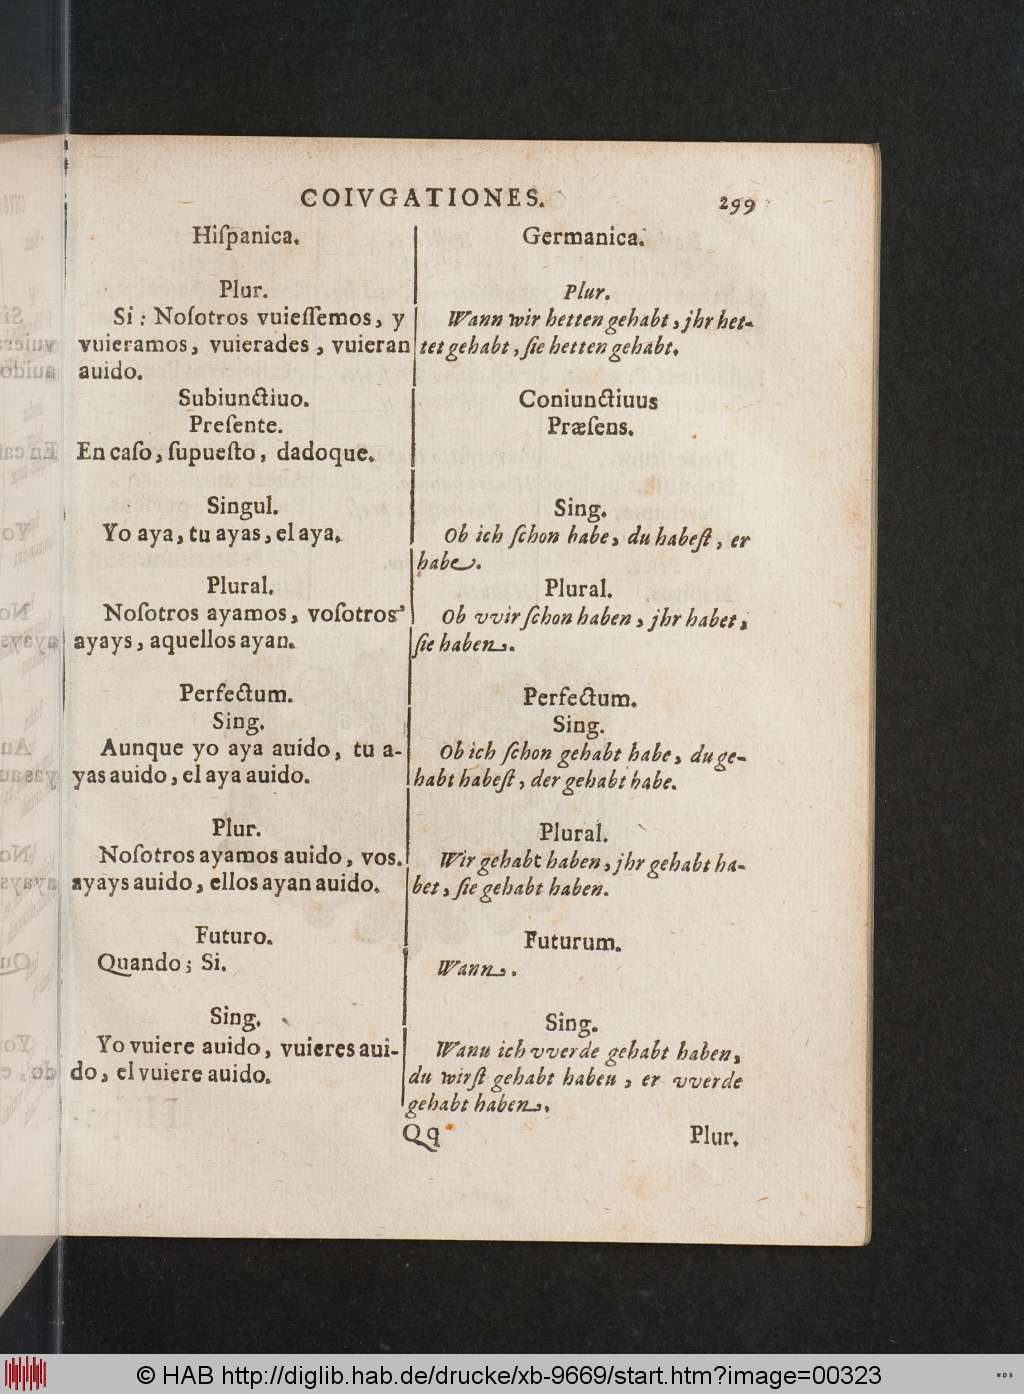 COIVGATIONES.
299
Hiſpanica.
Plur.
Si: Noſotros vuieſſemos, y
vuieramos, vuierades, vuieran
auido.
Subiunctiuo.
Preſente.
En caſo, ſupueſto, dadoque.
Singul.
Yo aya, tu ayas, el aya.
Plural.
Noſotros ayamos, voſotros
ayays, aquellos ayan.
Perfectum.
Sing.
Aunque yo aya auido, tu a-
yas auido, el aya auido.
Plur.
Noſotros ayamos auido, vos.
ayays auido, ellos ayan auido.
Futuro.
Quando; Si.
Sing.
Yo vuiere auido, vuieres aui-
do, el vuiere auido.
Germanica.
Plur.
Wann wir hetten gehabt, jhr het-
tet gehabt, ſie hetten gehabt.
Coniunctiuus
Præſens.
Sing.
Ob ich ſchon habe, du habeſt, er
habe.
Plural.
Ob vvir ſchon haben, jhr habet,
ſie haben.
Perfectum.
Sing.
Ob ich ſchon gehabt habe, du ge-
habt habeſt, der gehabt habe.
Plural.
Wir gehabt haben, jhr gehabt ha-
bet, ſie gehabt haben.
Futurum.
Wann.
Sing.
Wanu ich vverde gehabt haben,
du wirſt gehabt habeu, er vverde
gehabt haben.
Qq
Plur.
© HAB http://diglib.hab.de/drucke/xb-9669/start.htm?image=00323